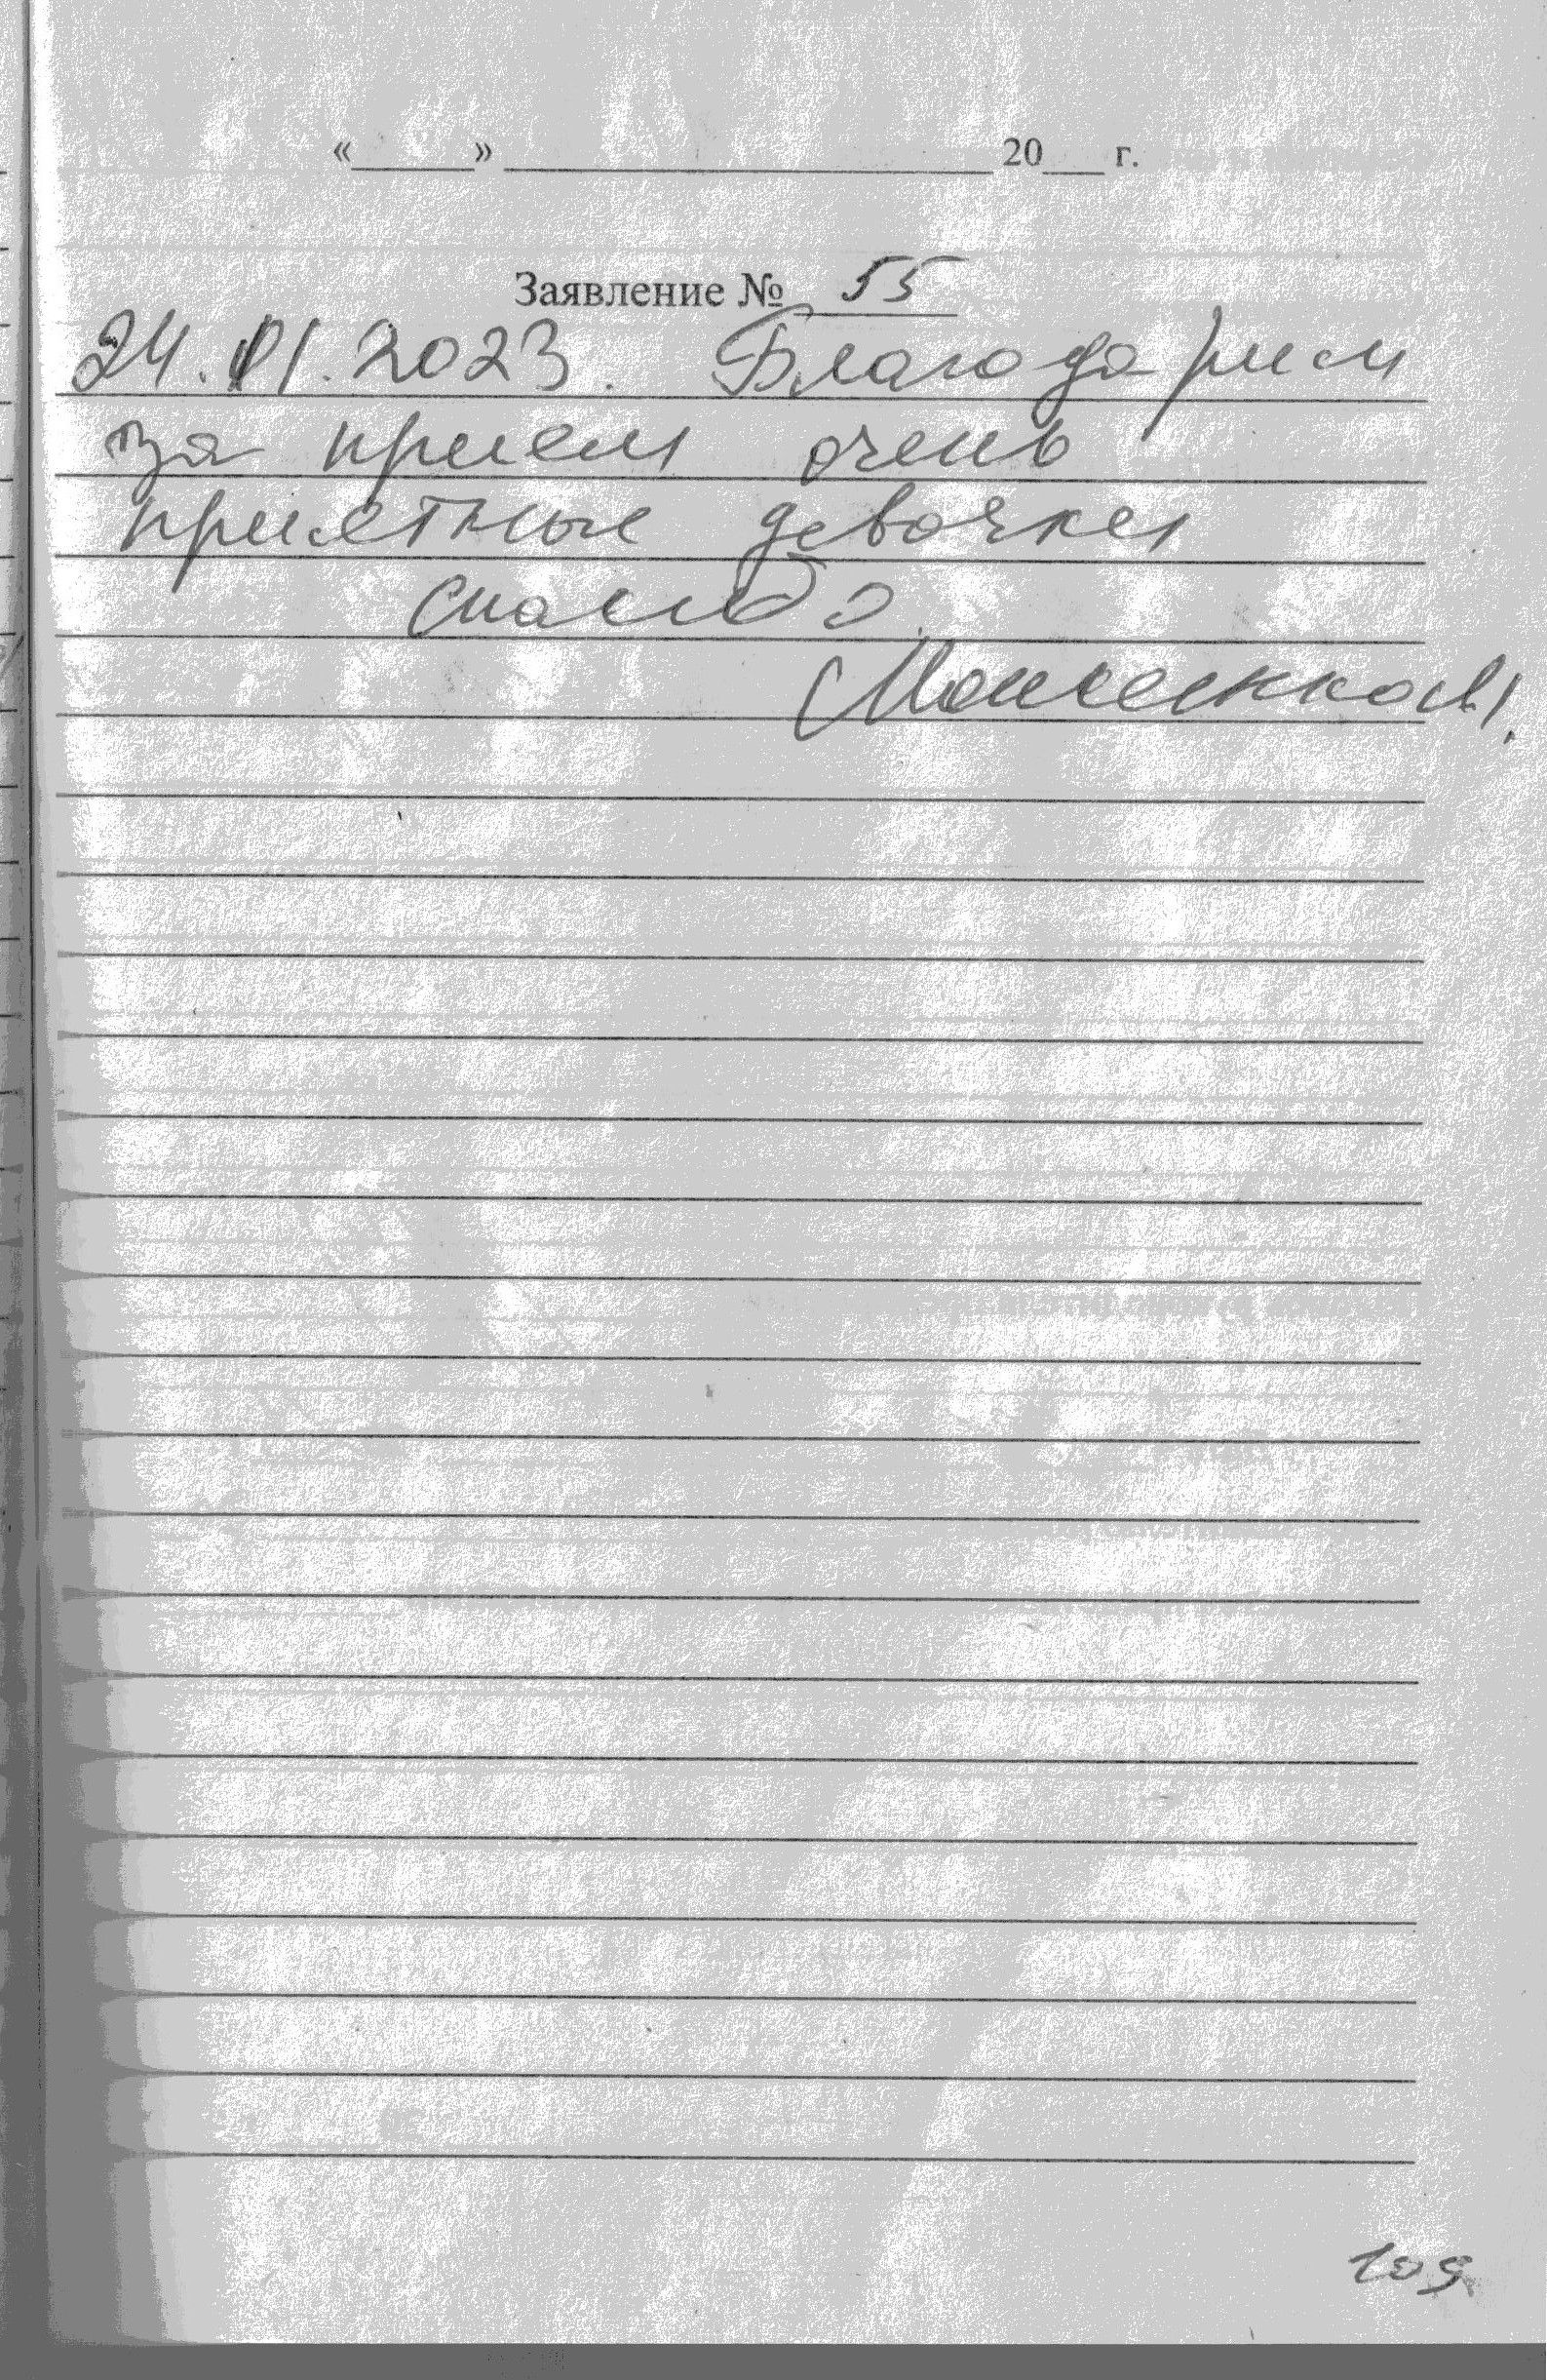 «______» ______________ 20___ г.
Заявление № 55
24.01.2023. Благодарим
за прием очень
приятные девочки
спасибо.
109